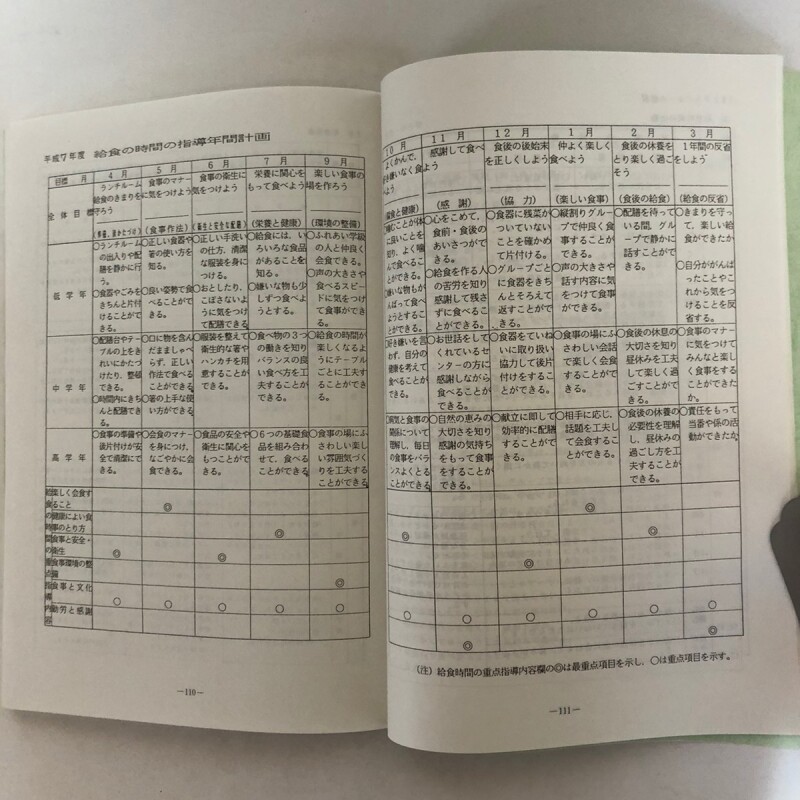 平成7年度 給食の時間の指導年間計画
目標 月
4月
5月
6月
7月
9月
全体目標
ランチルーム
給食のきまりを
守ろう
(準備、あとかたづけ)
食事のマナー
に気をつけよう
(食事作法)
食事の衛生に
気をつけよう
(衛生と安全な配膳)
栄養に関心を
もって食べよう
(栄養と健康)
楽しい食事の
場を作ろう
(環境の整備)
低学年
○ランチルーム
の出入りや配
膳を静かに行
う。
○食器やごみを
きちんと片付
けることがで
きる。
○正しい食器や
箸の使い方を
知る。
○良い姿勢で食
べることがで
きる。
○正しい手洗い
の仕方、清潔
な服装を身に
つける。
○おとしたり、
こぼさないよう
に気をつけ
て配膳できる
○給食には、い
ろいろな食品
があることを
知る。
○嫌いな物も少
しずつ食べよ
うとする。
○ふれあい学級
の人と仲良く
会食できる。
○声の大きさや
食べるスピー
ドに気をつけ
て食事ができ
る。
中学年
○配膳台やテー
ブルの上をき
れいにかたづ
けたり、整頓
できる。
○時間内にきち
んと配膳でき
る。
○口に物を含ん
だまましゃべ
らず、正しい
作法で食べる
ことができる
○箸の上手な使
い方ができる
○服装を整えて
衛生的な箸や
ハンカチを用
意することが
できる。
○食べ物の3つ
の働きを知り
バランスの良
い食べ方を工
夫することが
できる。
○給食の時間が
楽しくなるよ
うにテーブル
ごとに工夫す
ることができ
る。
高学年
○食事の準備や
後片付けが安
全で清潔にで
きる。
○会食のマナー
を身につけ、
なごやかに会
食できる。
○食品の安全や
衛生に関心を
もつことがで
きる。
○6つの基礎食
品を組み合わ
せて、食べる
ことができる
○食事の場にふ
さわしい楽し
い雰囲気づく
りを工夫する
ことができる
楽しく会食す
ること ◎
健康によい食
事のとり方 ◎
食事と安全・
衛生 ◎ ◎
食事環境の整
備 ◎
食事と文化 ○ ○ ○ ○ ○
勤労と感謝
―110―
10月
11月
12月
1月
2月
3月
よくかんで、
好き嫌いなく食
べよう
感謝して食べ
よう
(感謝)
食後の後始末
を正しくしよう
(協力)
仲よく楽しく
食べよう
(楽しい食事)
食後の休養を
とり楽しく過ご
そう
(食後の給食)
1年間の反省
をしよう
(給食の反省)
○心をこめて、
食前・食後の
あいさつがで
きる。
○給食を作る人
の苦労を知り
感謝して残さ
ずに食べるこ
とができる。
○食器に残菜が
ついていない
ことを確かめ
て片付ける。
○グループごと
に食器をきち
んとそろえて
返すことがで
きる。
○縦割りグルー
プで仲良く食
事することが
できる。
○声の大きさや
話す内容に気
をつけて食事
ができる。
○配膳を待って
いる間、グルー
プで静かに話
すことができ
る。
○きまりを守っ
て、楽しい給
食ができたか
○自分ががんば
ったことやこ
れから気をつ
けることを反
省する。
○お世話をして
くれているセ
ンターの方に
感謝しながら
食べることが
できる。
○食器をていね
いに取り扱い
協力して後片
付けをするこ
とができる。
○食事の場にふ
さわしい会話
で楽しく会食
することがで
きる。
○食後の休息の
大切さを知り
昼休みを工夫
して楽しく過
ごすことがで
きる。
○食事のマナー
に気をつけて
みんなと楽し
く食事をする
ことができた
か。
○自然の恵みの
大切さを知り
感謝の気持ち
をもって食事
をすることが
できる。
○献立に即して
効率的に配膳
することがで
きる。
○相手に応じ、
話題を工夫し
て会食するこ
とができる。
○食後の休養の
必要性を理解
し、昼休みの
過ごし方を工
夫することが
できる。
○責任をもって
当番や係の活
動ができたか
◎
◎ ◎
◎
○ ○ ○ ○ ○ ○
◎ ◎
(注) 給食時間の重点指導内容欄の◎は最重点項目を示し、○は重点項目を示す。
―111―